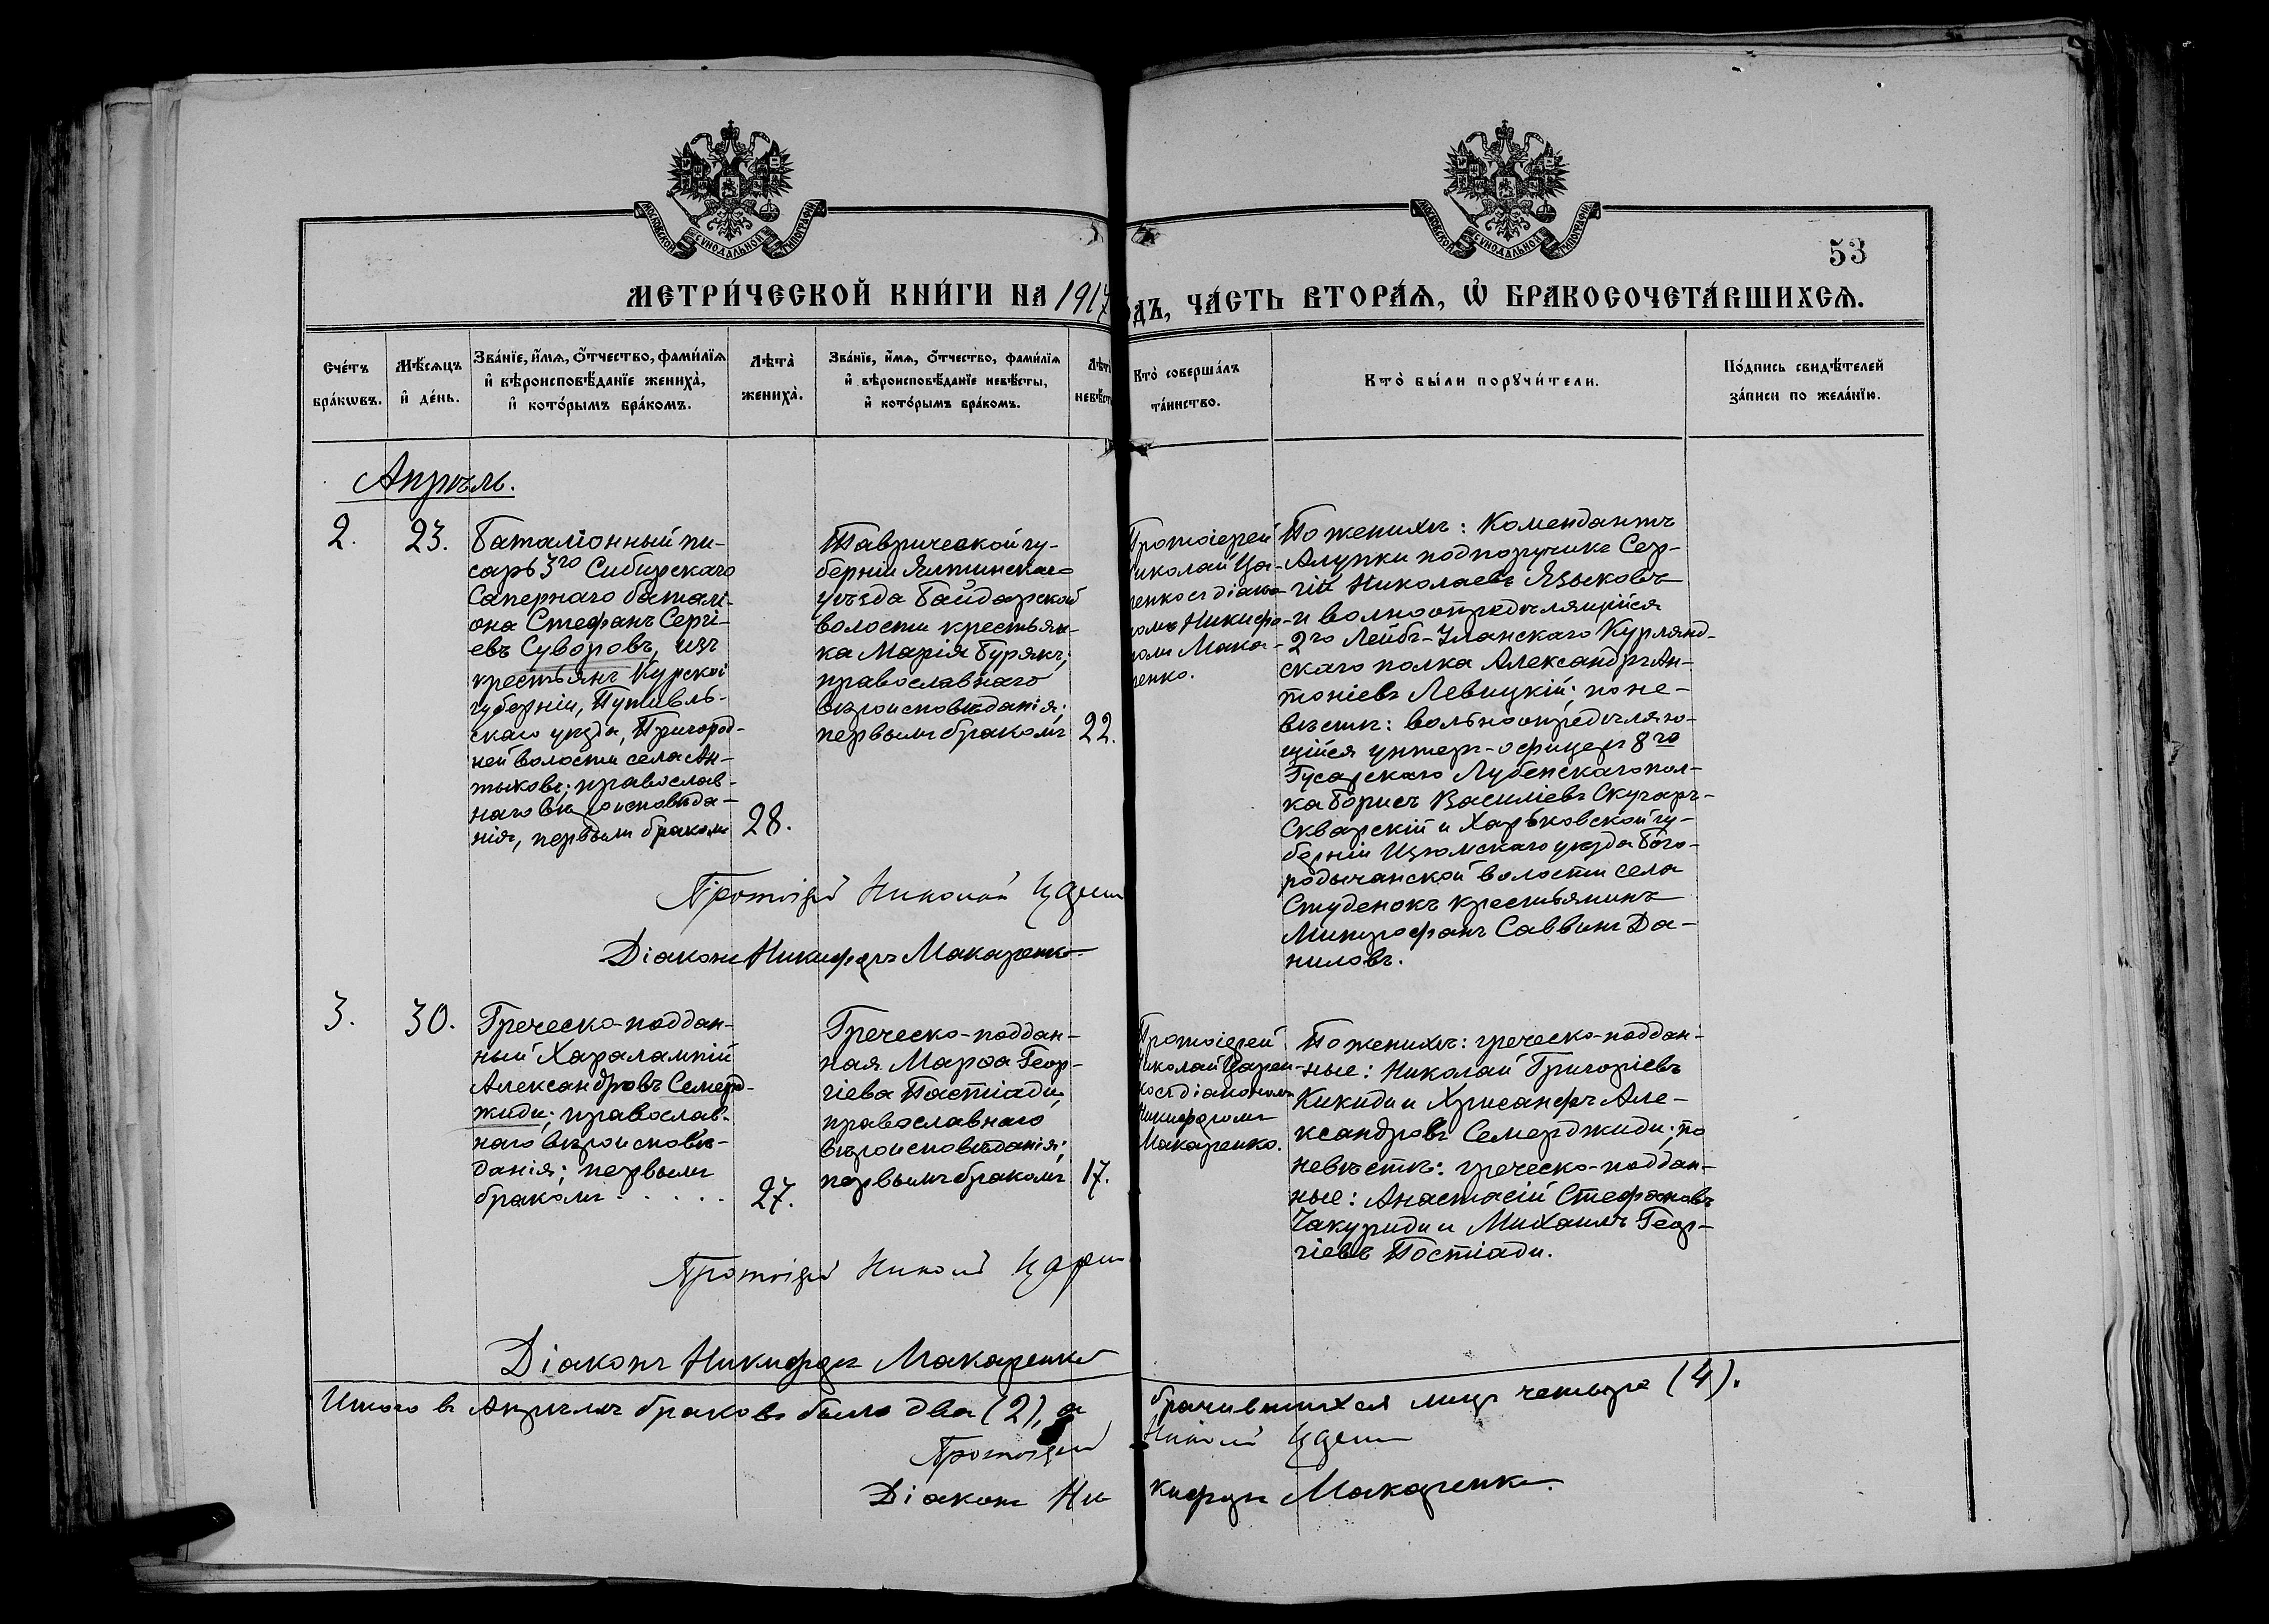 МОСКОВСКОЙ СѴНОДАЛЬНОЙ ТИПОГРАФІИ
МОСКОВСКОЙ СѴНОДАЛЬНОЙ ТИПОГРАФІИ
53
МЕТРИ́ЧЕСКОЙ КНИ́ГИ НА 1917
ОДЪ, ЧА́СТЬ ВТОРА́Ѧ, Ѽ БРАКОСОЧЕТА́ВШИХСѦ.
Сче́тъ бра́кѡвъ.
Мѣ́сѧцъ и҆ де́нь.
Зва́нїе, и҆́мѧ, ѻ҆́тчество, фами́лїѧ
и҆ вѣроисповѣ́данїе жениха̀,
и҆ кото́рымъ бра́комъ.
Лѣта̀ жениха̀.
Зва́нїе, и҆́мѧ, ѻ҆́тчество, фами́лїѧ
и҆ вѣроисповѣ́данїе невѣ́сты,
и҆ кото́рымъ бра́комъ.
Лѣта̀ невѣ́ст
Кто̀ соверша́лъ
та́инство.
Кто̀ бы́ли порꙋчи́тели.
По́дпись свидѣ́телей
за́писи по жела́нїю.
Апрѣль.
2.
23.
Баталіонный пи-
сарь 3го Сибирскаго
Сапернаго баталі-
она Стефанъ Сергі-
евъ Суворовъ, изъ
крестьянъ Курской
губерніи, Путивль-
скаго уѣзда, Пригород-
ней волости села Ан-
тыковъ; православ-
наго вѣроисповѣда-
нія, первымъ бракомъ
28.
Таврической гу-
берніи Ялтинскаго
уѣзда Байдарской
волости крестьян-
ка Марія Бурякъ;
православнаго
вѣроисповѣданія;
первымъ бракомъ
22.
Протоіерей
иколай Ца-
ренко съ діако-
омъ Никифо-
ромъ Мака-
ренко.
По женихѣ: Комендантъ
Алупки подпоручикъ Сер-
гій Николаевъ Языковъ
и вольноопредѣляющійся
2го Лейбъ-Уланскаго Курлянд-
скаго полка Александръ Ан-
тоніевъ Левицкій; по не-
вѣстѣ: вольноопредѣляю-
щійся унтеръ-офицеръ 8го
Гусарскаго Лубенскаго пол-
ка Борисъ Василіевъ Скучаръ-
Скварскій и Харьковской гу-
берніи Изюмскаго уѣзда Бого-
родычанской волости села
Студенокъ крестьянинъ
Митрофанъ Саввинъ Да-
ниловъ.
Протоіерей Николай Царен
Діаконъ Никифоръ Макаренко
3.
30.
Греческо-поддан-
ный Харалампій
Александровъ Семерд-
жиди; православ-
наго вѣроисповѣ-
данія; первымъ
бракомъ . . . . .
27.
Греческо-поддан-
ная Марѳа Геор-
гіева Постіади,
православнаго
вѣроисповѣданія;
первымъ бракомъ
17.
Протоіерей
Николай Царен-
ко съ діакономъ
Никифоромъ
Макаренко.
По женихѣ: греческо-поддан-
ные: Николай Григоріевъ
Кикиди и Хрисанфъ Але-
ксандровъ Семерджиди; по
невѣстѣ: греческо-поддан-
ные: Анастасій Стефановъ
Чакуриди и Михаилъ Геор-
гіевъ Постіади.
Протоіерей Николай Царен
Діаконъ Никифоръ Макаренко
Итого въ Апрѣлѣ браковъ было два (2), а брачившихся лицъ четыре (4).
Протоіерей Николай Царен
Діаконъ Никифоръ Макаренко.